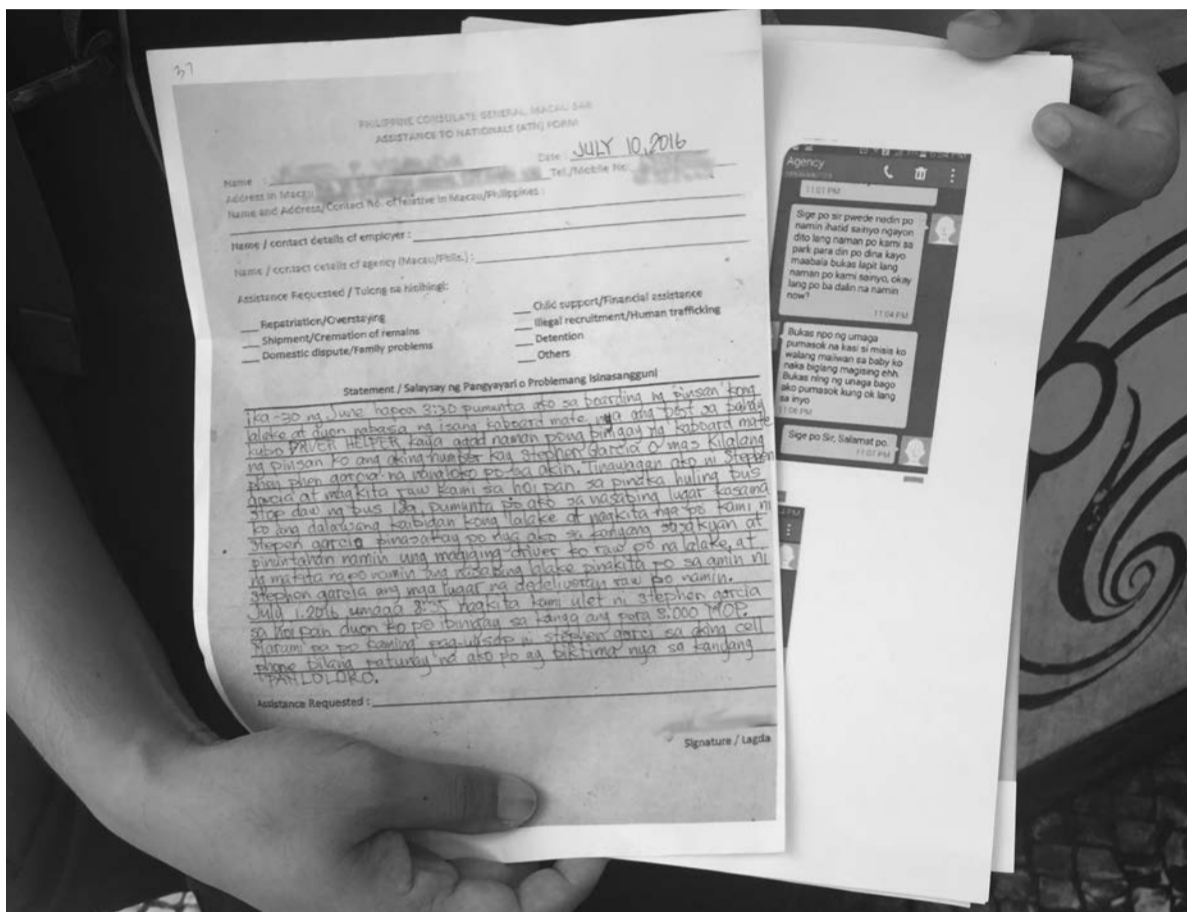 37
PHILIPPINE CONSULATE GENERAL, MACAU SAR
ASSISTANCE TO NATIONALS (ATN) FORM
Date: JULY 10, 2016
Name :
Tel./Mobile No:
Address in Macau
Name and Address/Contact No. of relative in Macau/Philippines :
Name / contact details of employer :
Name / contact details of agency (Macau/Phils.) :
Assistance Requested / Tulong na hinihingi:
Repatriation/Overstaying
Shipment/Cremation of remains
Domestic dispute/Family problems
Child support/Financial assistance
Illegal recruitment/Human trafficking
Detention
Others
Statement / Salaysay ng Pangyayari o Problemang Isinasangguni
Ika-30 ng June hapon 3:30 pumunta ako sa boarding ng pinsan kong
lalake at duon nabasa ng isang kaboard mate nya ang post sa bahay
kubo DRIVER HELPER kaya agad naman pong binigay ng kaboard mate
ng pinsan ko ang aking number kay Stephen Garcia o mas kilalang
phen phen garcia na nanloko po sa akin. Tinawagan ako ni Stephen
garcia at magkita raw kami sa hoi pan sa pinaka huling bus
stop daw ng bus 12a, pumunta po ako sa nasabing lugar kasama
ko ang dalawang kaibigan kong lalake at nagkita nga po kami ni
Stepen garcia pinasakay po nya ako sa kanyang sasakyan at
pinuntahan namin ung magiging driver ko raw po na lalake, at
ng makita na po namin ang nasabing lalake pinakita po sa amin ni
Stephen garcia ang mga lugar na dedeliveran raw po namin.
July 1, 2016 umaga 8:35 nagkita kami ulet ni stephen garcia
sa hoi pan duon ko po ibinigay sa kanya ang pera 3,000 MOP.
Marami pa po kaming pag-uusap ni stephen garci sa aking cell
phone bilang patunay na ako po ay biktima nya sa kanyang
PANLOLOKO.
Assistance Requested :
Signature / Lagda
Agency
11:01 PM
Sige po sir pwede nadin po
namin ihatid sainyo ngayon
dito lang naman po kami sa
park para din po dina kayo
maabala bukas lapit lang
naman po kami sainyo, okay
lang po ba dalin na namin
now?
11:04 PM
Bukas npo ng umaga
pumasok na kasi si misis ko
walang maiiwan sa baby ko
naka biglang magising ehh.
Bukas ning ng unaga bago
ako pumasok kung ok lang
sa inyo
11:06 PM
Sige po Sir, Salamat po.
11:07 PM